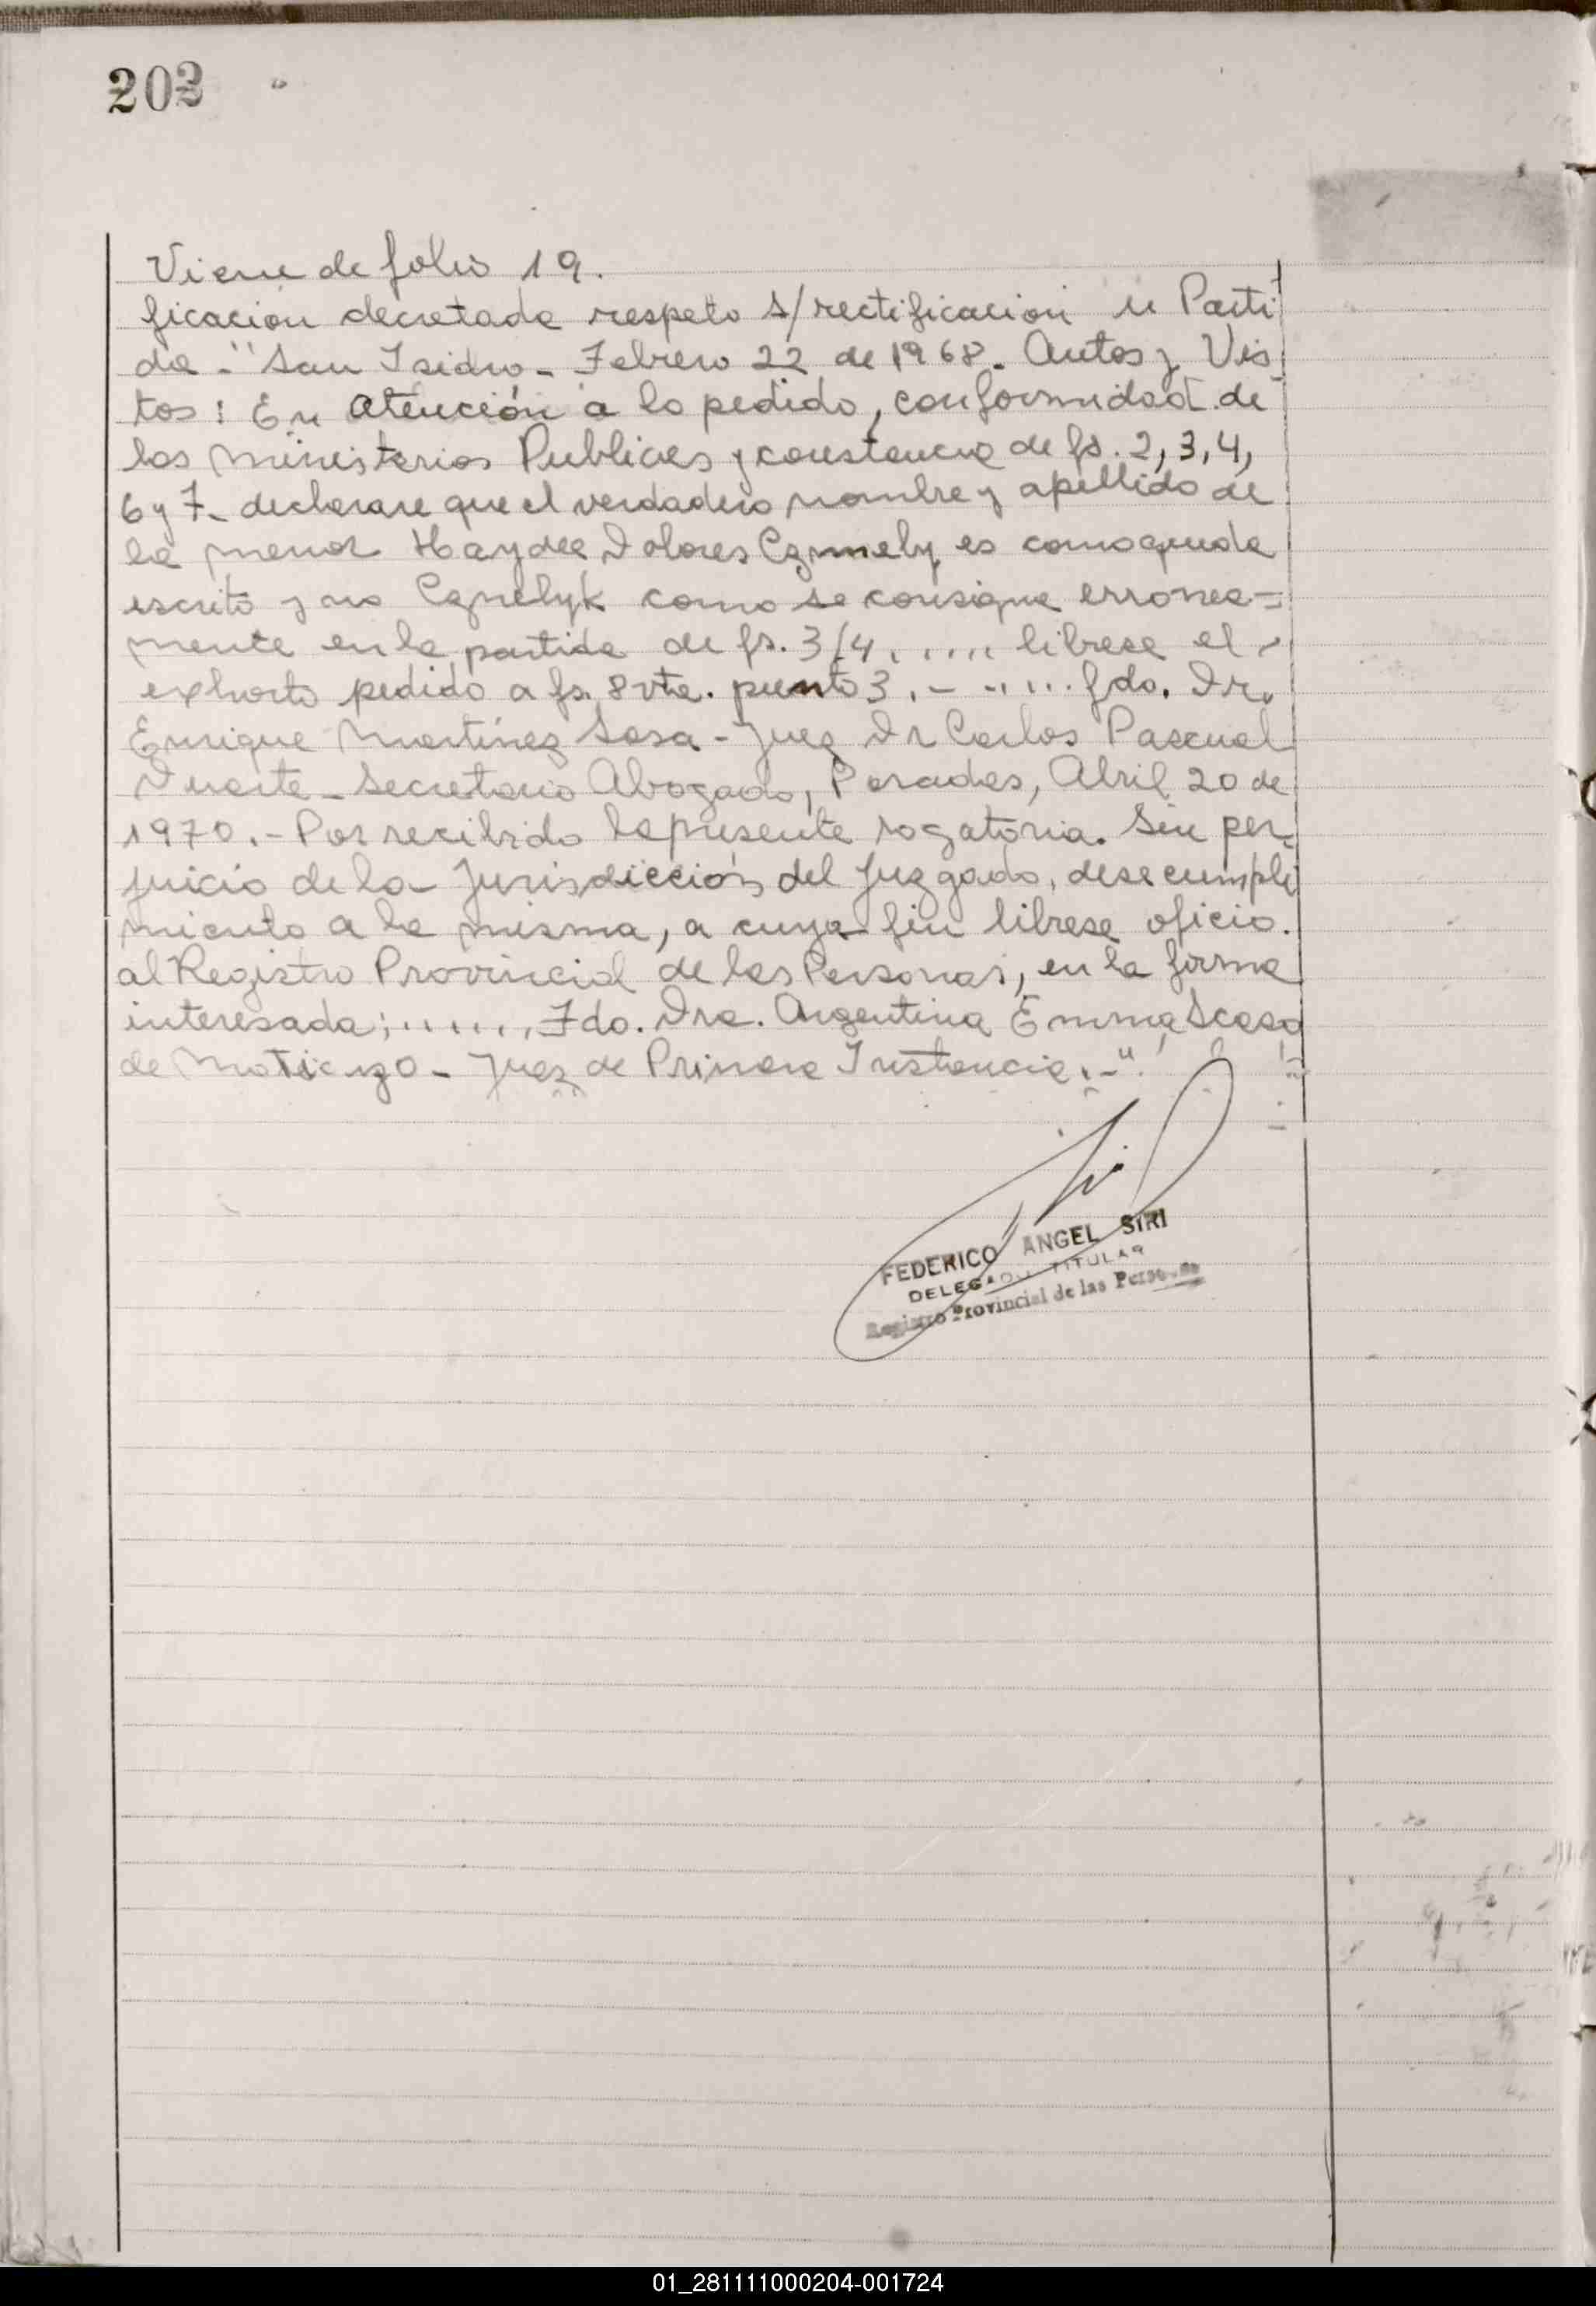 202
Viene de folio 19.
ficación decretada respeto s/rectificacion de Parti
da - "San Isidro - Febrero 22 de 1968. Autos y Vis
tos: En atención a lo pedido, conformidad de
los ministerios Publicos y constancia de fs. 2, 3, 4,
6 y 7 - declarase que el verdadero nombre y apellido de
la menor Haydee Dolores Czmely es como queda
escrito y no Czmelyk como se consigna erronea=
mente en la partida de fs. 3/4. .... librese el
exhorto pedido a fs. 8 vta. punto 3. - ..... fdo. Dr.
Enrique Martínez Sosa - Juez Dr Carlos Pascual
Duarte - Secretario Abogado, Posadas, Abril 20 de
1970. - Por recibido la presente rogatoria. Sin per-
juicio de la Jurisdicción del Juzgado, dese cumpli
miento a la misma, a cuyo fin librese oficio.
al Registro Provincial de las Personas, en la forma
interesada; ....., Fdo. Dra. Argentina Emma
de - Juez de Primera Instancia. -"
FEDERICO ANGEL SIRI
DELEGADO TITULAR
Registro Provincial de las Personas
01_281111000204-001724